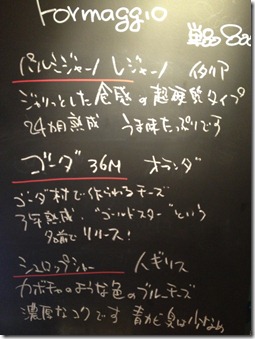 Formaggio
単品 800
パルミジャーノ レジャーノ イタリア
ジャリッとした食感の超硬質タイプ
24カ月熟成 うま味たっぷりです
ゴーダ 36M オランダ
ゴーダ村で作られるチーズ
3年熟成 "ゴールドスター"という
名前でリリース!
シュロップシャー イギリス
カボチャのような色のブルーチーズ
濃厚なコクです 青カビ臭は少なめ